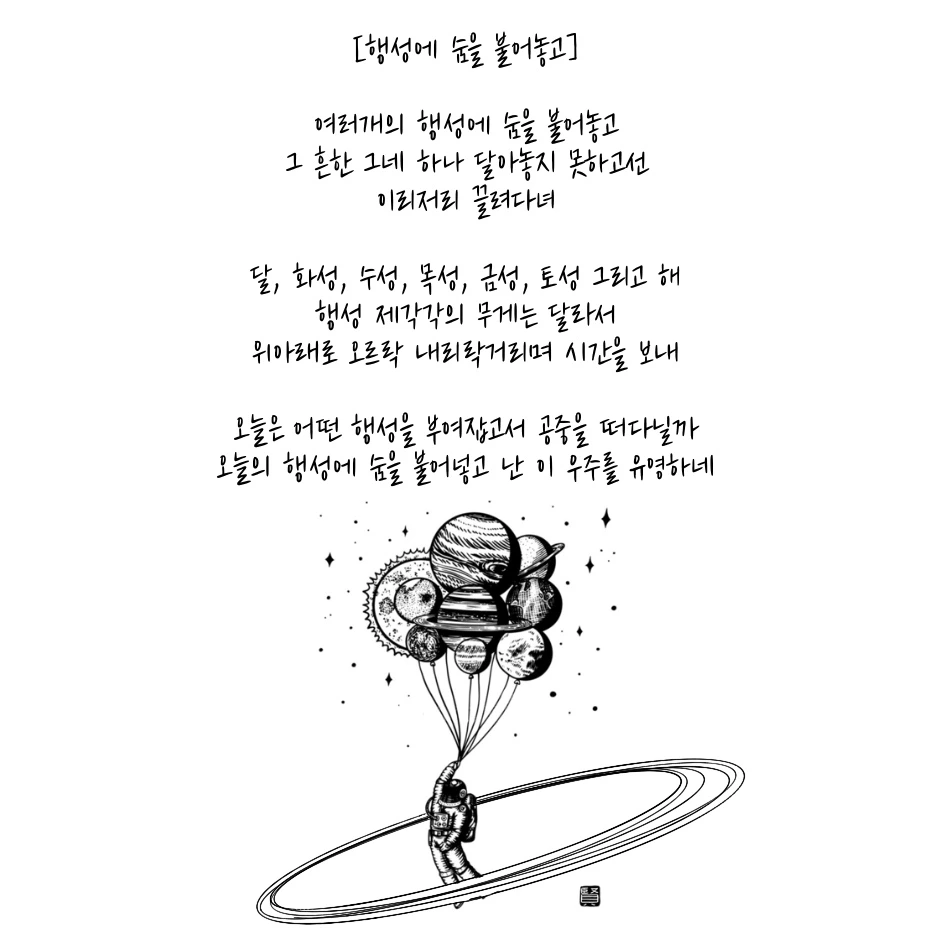 [행성에 숨을 불어놓고]
여러개의 행성에 숨을 불어놓고
그 흔한 그네 하나 달아놓지 못하고선
이리저리 끌려다녀
달, 화성, 수성, 목성, 금성, 토성 그리고 해
행성 제각각의 무게는 달라서
위아래로 오르락 내리락거리며 시간을 보내
오늘은 어떤 행성을 부여잡고서 공중을 떠다닐까
오늘의 행성에 숨을 불어넣고 난 이 우주를 유영하네
賢